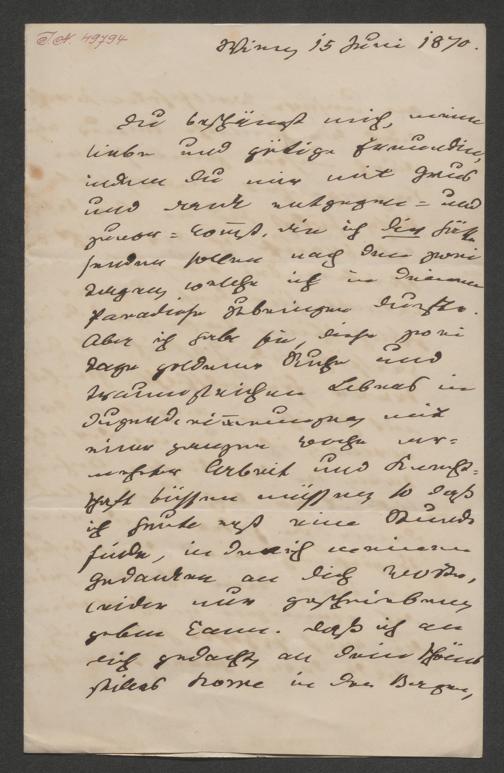 I.N. 49794
Wien, 15 Juni 1870.
Du beschämst mich, meine
liebe und gütige Freundin,
indem Du mir mit Gruß
und Dank entgegen- und
zuvor-kom̅st, die ich dir hätte
senden sollen nach den zwei
Tagen, welche ich in Deinem
Paradiese zubringen durfte.
Aber ich habe sie, diese zwei
Tage goldener Ruhe und
traumseligen Lebens in
Jugenderin̅erungen mit
einer ganzen Woche
Arbeit und Knecht-
schaft büßen müssen, so daß
ich heute erst eine Stunde
finde, in der ich meinen
Gedanken an Dich Worte,
leider nur geschriebene
geben kann. Daß ich an
Dich gedacht, an Dein schönes
stilles in den Bergen,